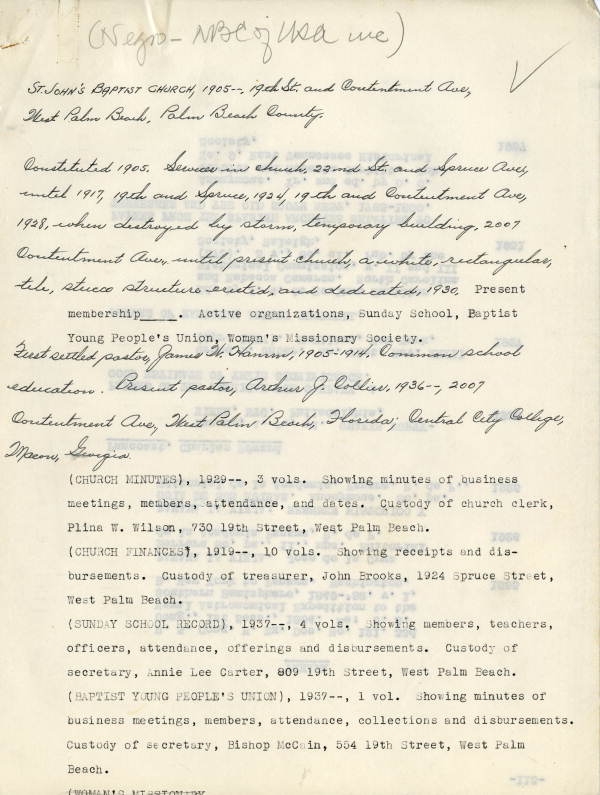 (Negro - NBC of USA inc)
St. John's Baptist Church, 1905--, 19th St. and Contentment Ave,
West Palm Beach, Palm Beach County.
Constituted 1905. Services in church, 22nd St. and Spruce Ave,
until 1917, 19th and Spruce, 1924, 19th and Contentment Ave,
1928, when destroyed by storm, temporary building, 2007
Contentment Ave, until present church, a white, rectangular,
tile, stucco structure erected, and dedicated, 1930. Present
membership____. Active organizations, Sunday School, Baptist
Young People's Union, Woman's Missionary Society.
First settled pastor, James W. Hamm, 1905-1914, Common school
education. Present pastor, Arthur J. Collier, 1936--, 2007
Contentment Ave, West Palm Beach, Florida; Central City College,
Macon, Georgia
(CHURCH MINUTES), 1929--, 3 vols. Showing minutes of business
meetings, members, attendance, and dates. Custody of church clerk,
Plina W. Wilson, 730 19th Street, West Palm Beach.
(CHURCH FINANCES), 1919--, 10 vols. Showing receipts and dis-
bursements. Custody of treasurer, John Brooks, 1924 Spruce Street,
West Palm Beach.
(SUNDAY SCHOOL RECORD), 1937--, 4 vols. Showing members, teachers,
officers, attendance, offerings and disbursements. Custody of
secretary, Annie Lee Carter, 809 19th Street, West Palm Beach.
(BAPTIST YOUNG PEOPLE'S UNION), 1937--, 1 vol. Showing minutes of
business meetings, members, attendance, collections and disbursements.
Custody of secretary, Bishop McCain, 554 19th Street, West Palm
Beach.
(WOMAN'S MISSIONARY